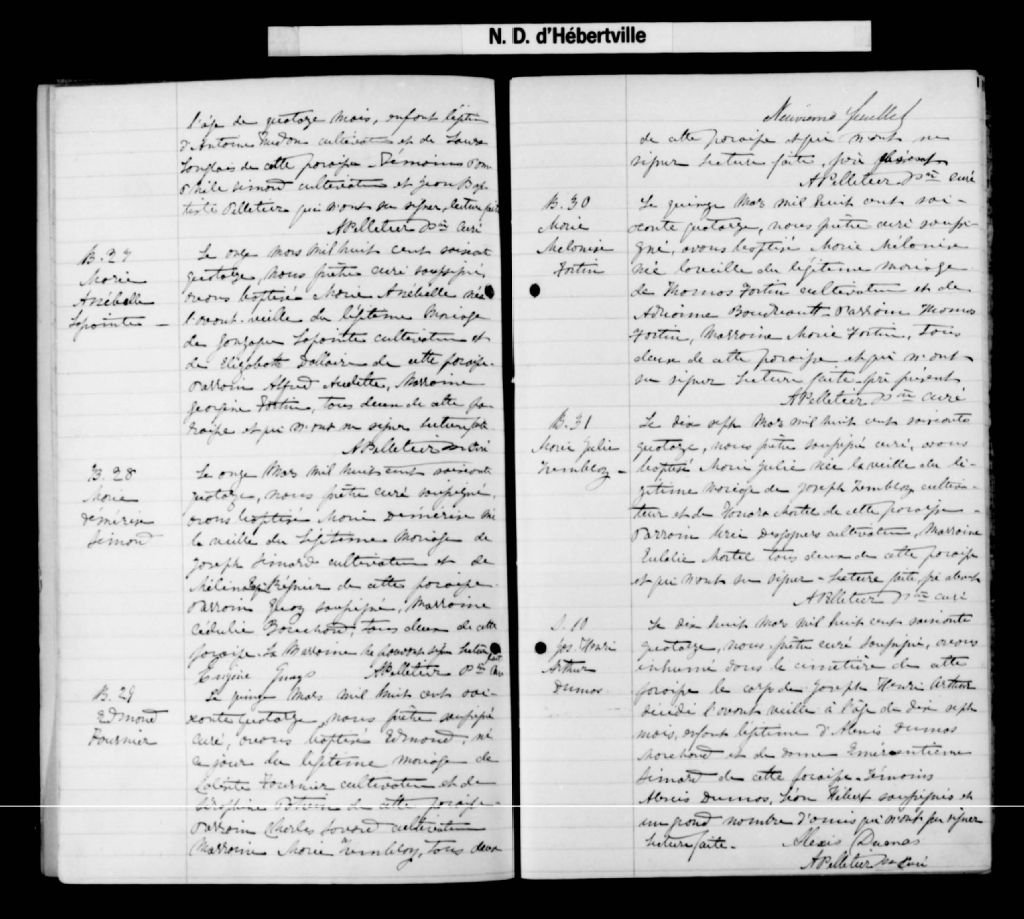 N. D. d'Hébertville
l'âge de quatorze mois, enfant légitime
d'Antoine cultivateur et de Laure
Langlais de cette paroisse Témoins
Simard cultivateur et Jean Bap-
tiste Pelletier qui n'ont su signer, lecture faite
A Pelletier Ptre Curé
B. 27
Marie
Anébelle
Lapointe
Le onze Mars mil huit cent soixante
quatorze, nous prêtre curé soussigné,
avons baptisé Marie Anébelle née
l'avant-veille du légitime Mariage
de Gonzague Lapointe cultivateur et
de Elizabeth Dallaire de cette paroisse.
Parrain Alfred Audette, Marraine
Georgine Fortin, tous deux de cette pa-
roisse et qui n'ont su signer lecture faite
A Pelletier Ptre Curé
B. 28
Marie
Démérise
Simard
Le onze Mars mil huit cent soixante
quatorze, nous prêtre curé soussigné,
avons baptisé Marie Démérise née
la veille du légitime Mariage de
Joseph Simard cultivateur et de
de cette paroisse.
Parrain Guay soussigné, Marraine
Cédulie Bouchard, tous deux de cette
paroisse. La Marraine lecture faite
Eugène Guay A Pelletier Ptre Curé
B. 29
Edmond
Fournier
Le quinze Mars mil huit cent soi-
xante quatorze, nous prêtre soussigné
curé, avons baptisé Edmond, né
ce jour du légitime mariage de
Fournier cultivateur et de
Séraphine Potvin de cette paroisse.
Parrain Charles Savard cultivateur
Marraine Marie Tremblay, tous deux
Neuvième feuillet
de cette paroisse et qui n'ont su
signer Lecture faite,
A Pelletier Ptre Curé
B. 30
Marie
Mélonise
Fortin
Le quinze Mars mil huit cent soi-
xante quatorze, nous prêtre curé soussi-
gné, avons baptisé Marie Mélonise
née la veille du légitime mariage
de Thomas Fortin cultivateur et de
Boudreault Parrain Thomas
Fortin, Marraine Marie Fortin, tous
deux de cette paroisse et qui n'ont
su signer Lecture faite présent
A Pelletier Ptre Curé
B. 31
Marie Julie
Tremblay
Le dix sept Mars mil huit cent soixante
quatorze, nous prêtre soussigné curé, avons
baptisé Marie Julie née la veille du lé-
gitime mariage de Joseph Tremblay cultiva-
teur et de de cette paroisse
Parrain cultivateur, Marraine
Eulalie Martel tous deux de cette paroisse
et qui n'ont su signer - Lecture faite,
A Pelletier Ptre Curé
S. 10
Jos. Henri
Arthur
Dumas
Le dix huit Mars mil huit cent soixante
quatorze, nous prêtre curé soussigné, avons
inhumé dans le cimetière de cette
paroisse le corps de Joseph Henri Arthur
décédé l'avant veille à l'âge de dix sept
mois, enfant légitime d'Alexis Dumas
Marchand et de dame Emérentienne
Simard de cette paroisse. Témoins
Alexis Dumas, Léon Hébert soussignés et
un grand nombre d'amis qui n'ont pu signer
Lecture faite. Alexis Dumas
A Pelletier Ptre Curé